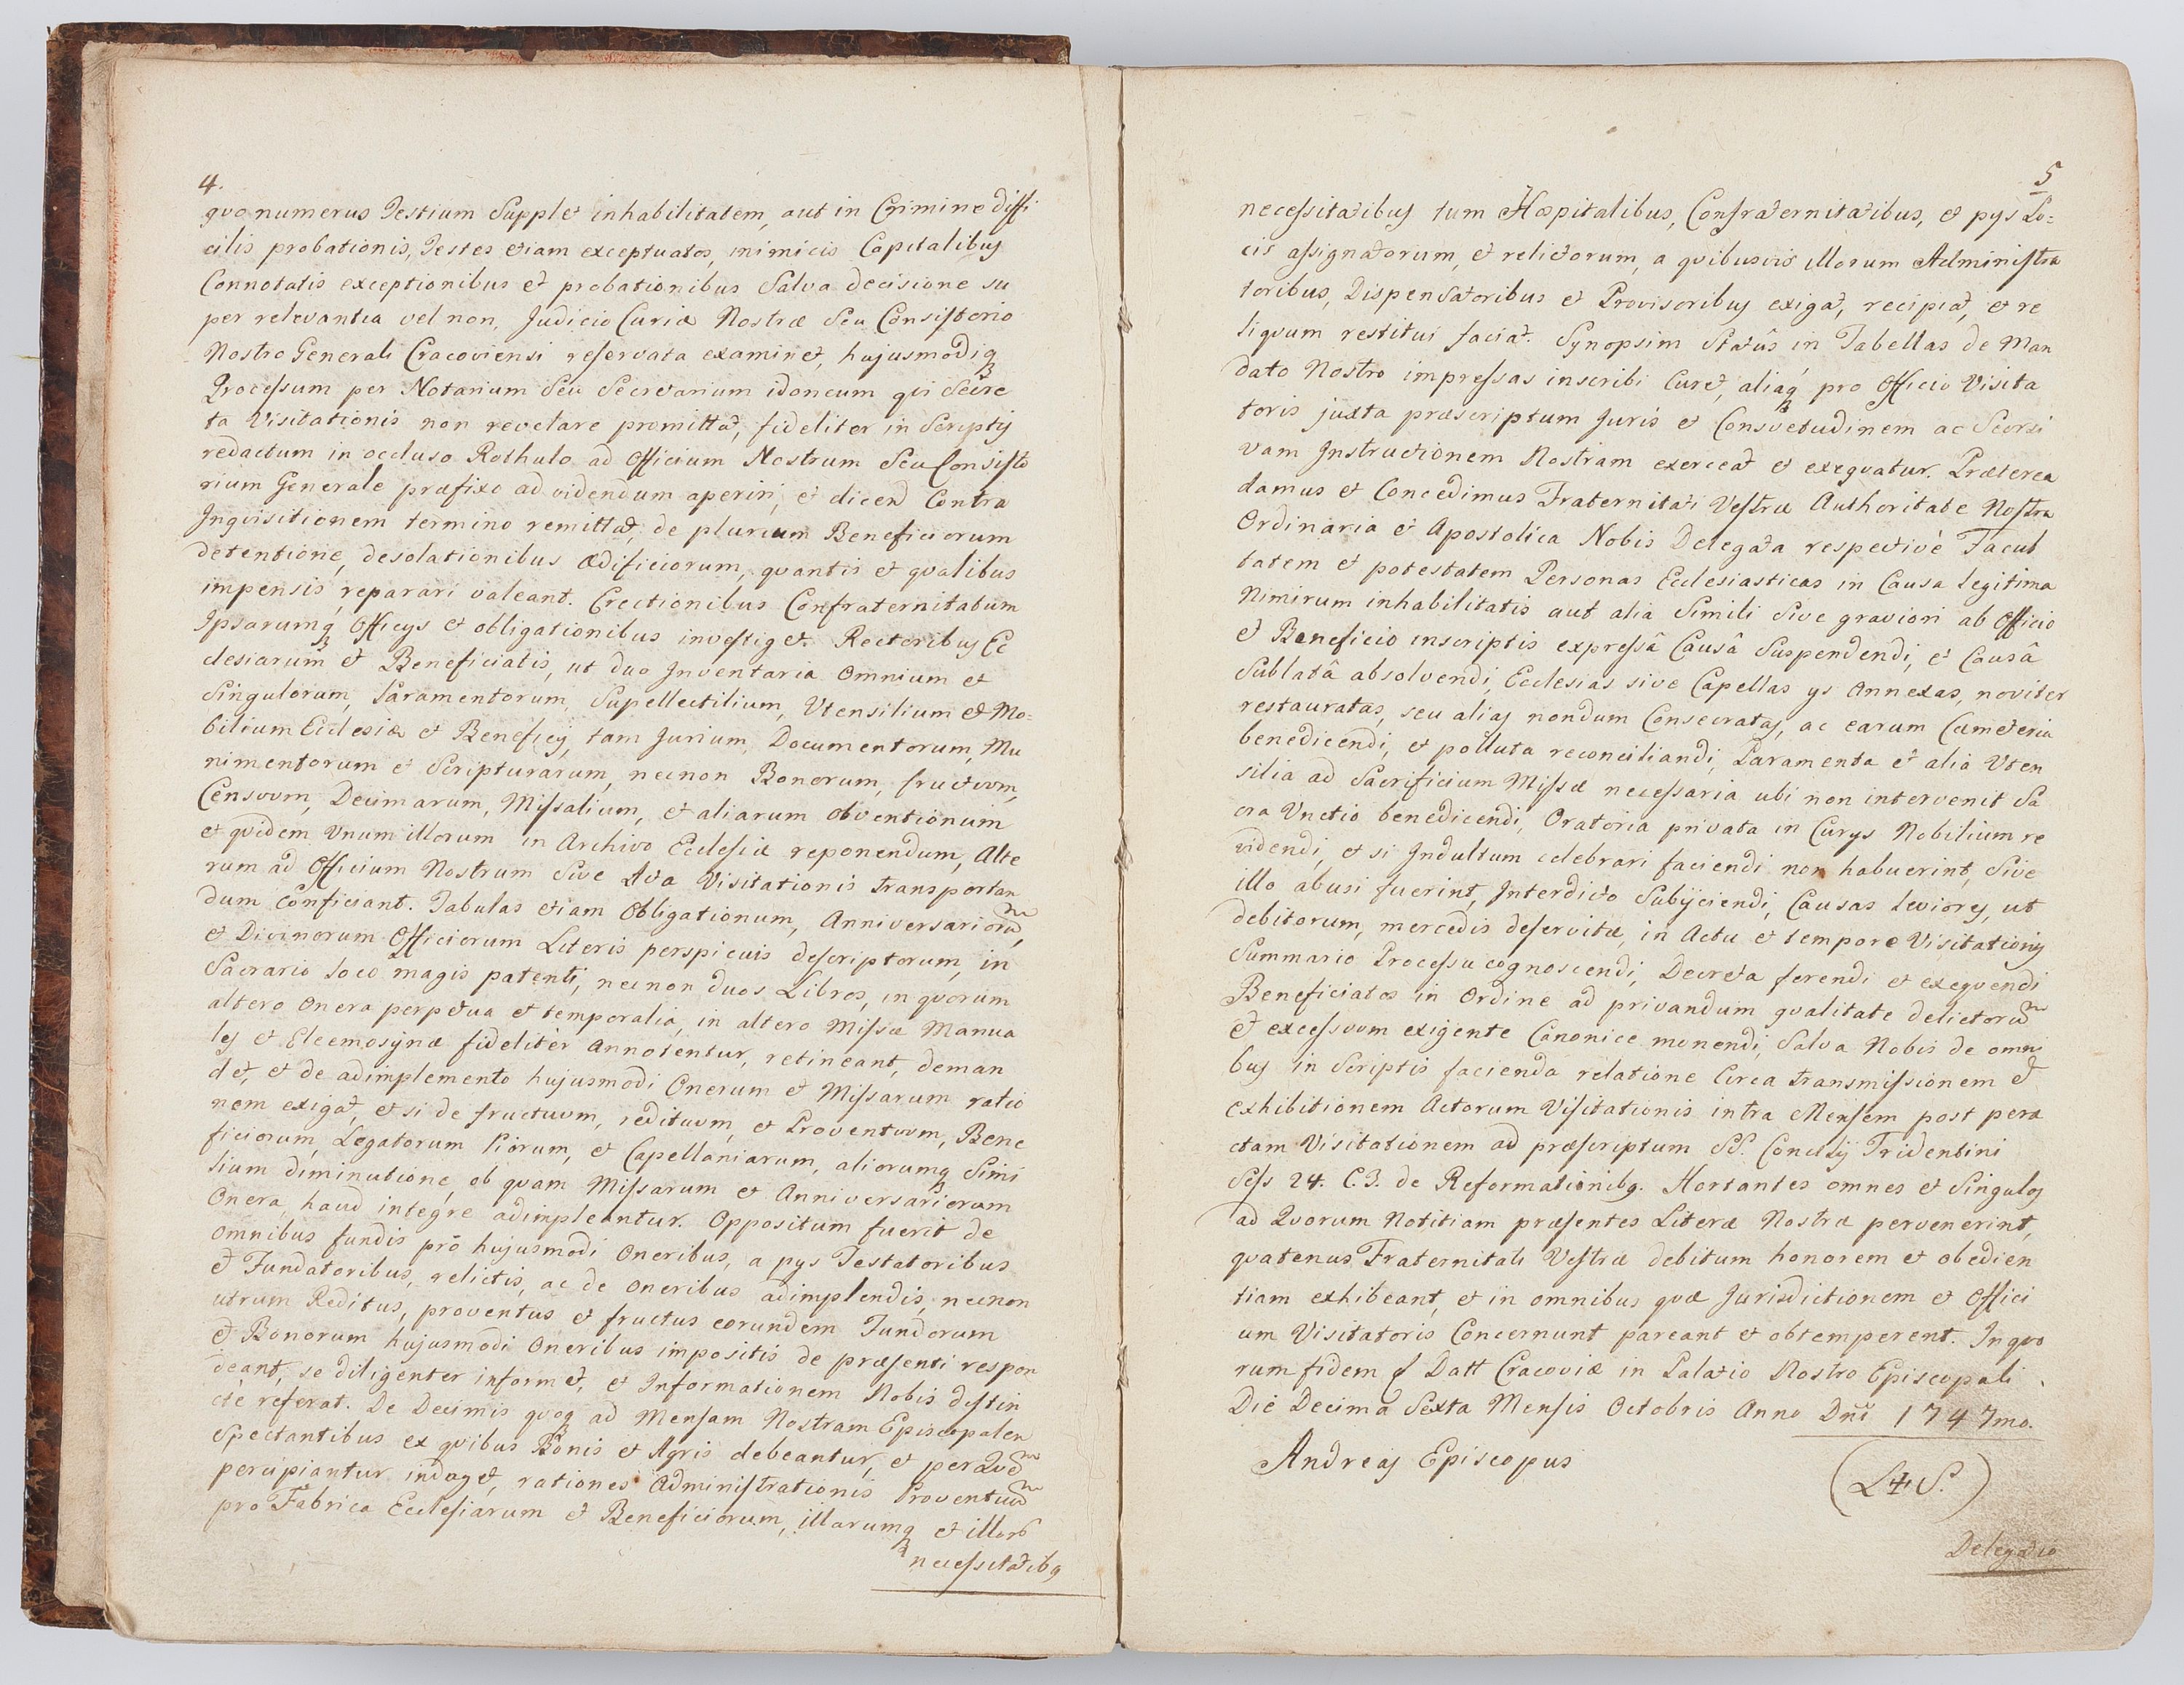 4.
quo numerus Testium Supplet inhabilitatem, aut in Crimine diffi
cilis probationis, Testes etiam exceptuatos, inimicis Capitalibus
Connotatis exceptionibus et probationibus Salva decisione su
per relevantia vel non, Judicio Curiæ Nostræ Seu Consistorio
Nostro Generali Cracoviensi reservata examinet, hujusmodiq
Processum per Notarium Seu Secretarium idoneum qui Secre
ta Visitationis non revelare promittat, fideliter in Scriptis
redactum in occluso Rothulo ad Officium Nostrum Seu Consisto
rium Generale præfixo ad videndum aperiri, et dicend Contra
Inquisitionem termino remittat, de plurium Beneficiorum
detentione, desolationibus ædificiorum, quantis et qualibus
impensis reparari valeant. Erectionibus Confraternitatum
Ipsarumq Officys et obligationibus investiget. Rectoribus Ec
clesiarum et Beneficiatis, ut duo Inventaria Omnium et
Singulorum, Paramentorum, Supellectilium, Utensilium et Mo=
bilium Ecclesiæ et Beneficy, tam Jurium, Documentorum, Mu
nimentorum et Scripturarum, necnon Bonorum, fructuum,
Censuum, Decimarum, Missalium, et aliarum obventionum
et quidem Unum illorum in Archivo Ecclesiæ reponendum, Alte
rum ad Officium Nostrum Sive Acta Visitationis transportan
dum conficiant. Tabulas etiam Obligationum, Anniversarioru,
et Divinorum Officiorum Literis perspicuis descriptorum, in
Sacrario loco magis patenti, necnon duos Libros, in quorum
altero Onera perpetua et temporalia, in altero Missæ Manua
les et Eleemosynæ fidelitèr Annotentur, retineant, deman
det, et de adimplemento hujusmodi Onerum et Missarum ratio
nem exigat, et si de fructuum, redituum, et Proventuum, Bene
ficiorum, Legatorum Piorum, et Capellaniarum, aliorumq Simi
lium diminutione, ob quam Missarum et Anniversariorum
Onera, haud integre adimpleantur. Oppositum fuerit de
omnibus fundis pro hujusmodi Oneribus, a pys Testatoribus
et Fundatoribus, relictis, ac de Oneribus adimplendis, necnon
utrum Reditus, proventus et fructus eorundem Fundorum
et Bonorum hujusmodi Oneribus impositis de præsenti respon
deant, se diligenter informet, et Informationem Nobis distin
ctè referat. De Decimis quoq ad Mensam Nostram Episcopalem
Spectantibus ex quibus Bonis et Agris debeantur, et per Qud
percipiantur indaget, rationes Administrationis Proventuu
pro Fabrica Ecclesiarum et Beneficiorum, illarumq et illorū
necessitatibq
5
necessitatibus tum Hospitalibus, Confraternitatibus, et pys Lo=
cis assignatorum, et relictorum, a quibusvis illorum Administra
toribus, Dispensatoribus et Provisoribus exigat, recipiat, et re
liquum restitui faciat. Synopsim Statûs in Tabellas de Man
dato Nostro impressas inscribi Curet, aliaq pro Officio Visita
toris juxta præscriptum Juris et Consvetudinem ac Seorsi
vam Instructionem Nostram exerceat et exequatur. Præterea
damus et Concedimus Fraternitati Vestræ Authoritate Nostra
Ordinaria et Apostolica Nobis Delegata respectivè Facul
tatem et potestatem Personas Ecclesiasticas in Causa legitima
Nimirum inhabilitatis aut alia Simili Sive graviori ab Officio
et Beneficio inscriptis expressâ Causâ Suspendendi, et Causâ
Sublatâ absolvendi, Ecclesias sive Capellas ys Annexas, noviter
restauratas, seu alias nondum Consecratas, ac earum Cæmeteria
benedicendi, et polluta reconciliandi, Paramenta et alia Uten
silia ad Sacrificium Missæ necessaria ubi non intervenit Sa
cra Unctio benedicendi, Oratoria privata in Curys Nobilium re
videndi, et si Indultum celebrari faciendi non habuerint, Sive
illo abusi fuerint, Interdicto Subijciendi, Causas leviores, ut
debitorum, mercedis deservitæ, in Actu et tempore Visitationis
Summario Processu cognoscendi, Decreta ferendi et exequendi
Beneficiatos in Ordine ad privandum qualitate delictoru
et excessuum exigente Canonice monendi, Salva Nobis de omni
bus in Scriptis facienda relatione Circa transmissionem et
exhibitionem Actorum Visitationis intra Mensem post pera
ctam Visitationem ad præscriptum Sd. Concily Tridentini
Sess 24. C.3. de Reformationibq. Hortantes omnes et Singulos
ad Quorum Notitiam præsentes Literæ Nostræ pervenerint,
quatenus Fraternitati Vestræ debitum honorem et obedien
tiam exhibeant, et in omnibus quæ Jurisdictionem et Offici
um Visitatoris Concernunt pareant et obtemperent. In quo
rum fidem Datt Cracoviæ in Palatio Nostro Episcopali
Die Decima Sexta Mensis Octobris Anno Dñi 1747mo.
Andreas Episcopus
(L+S.)
Delegatio